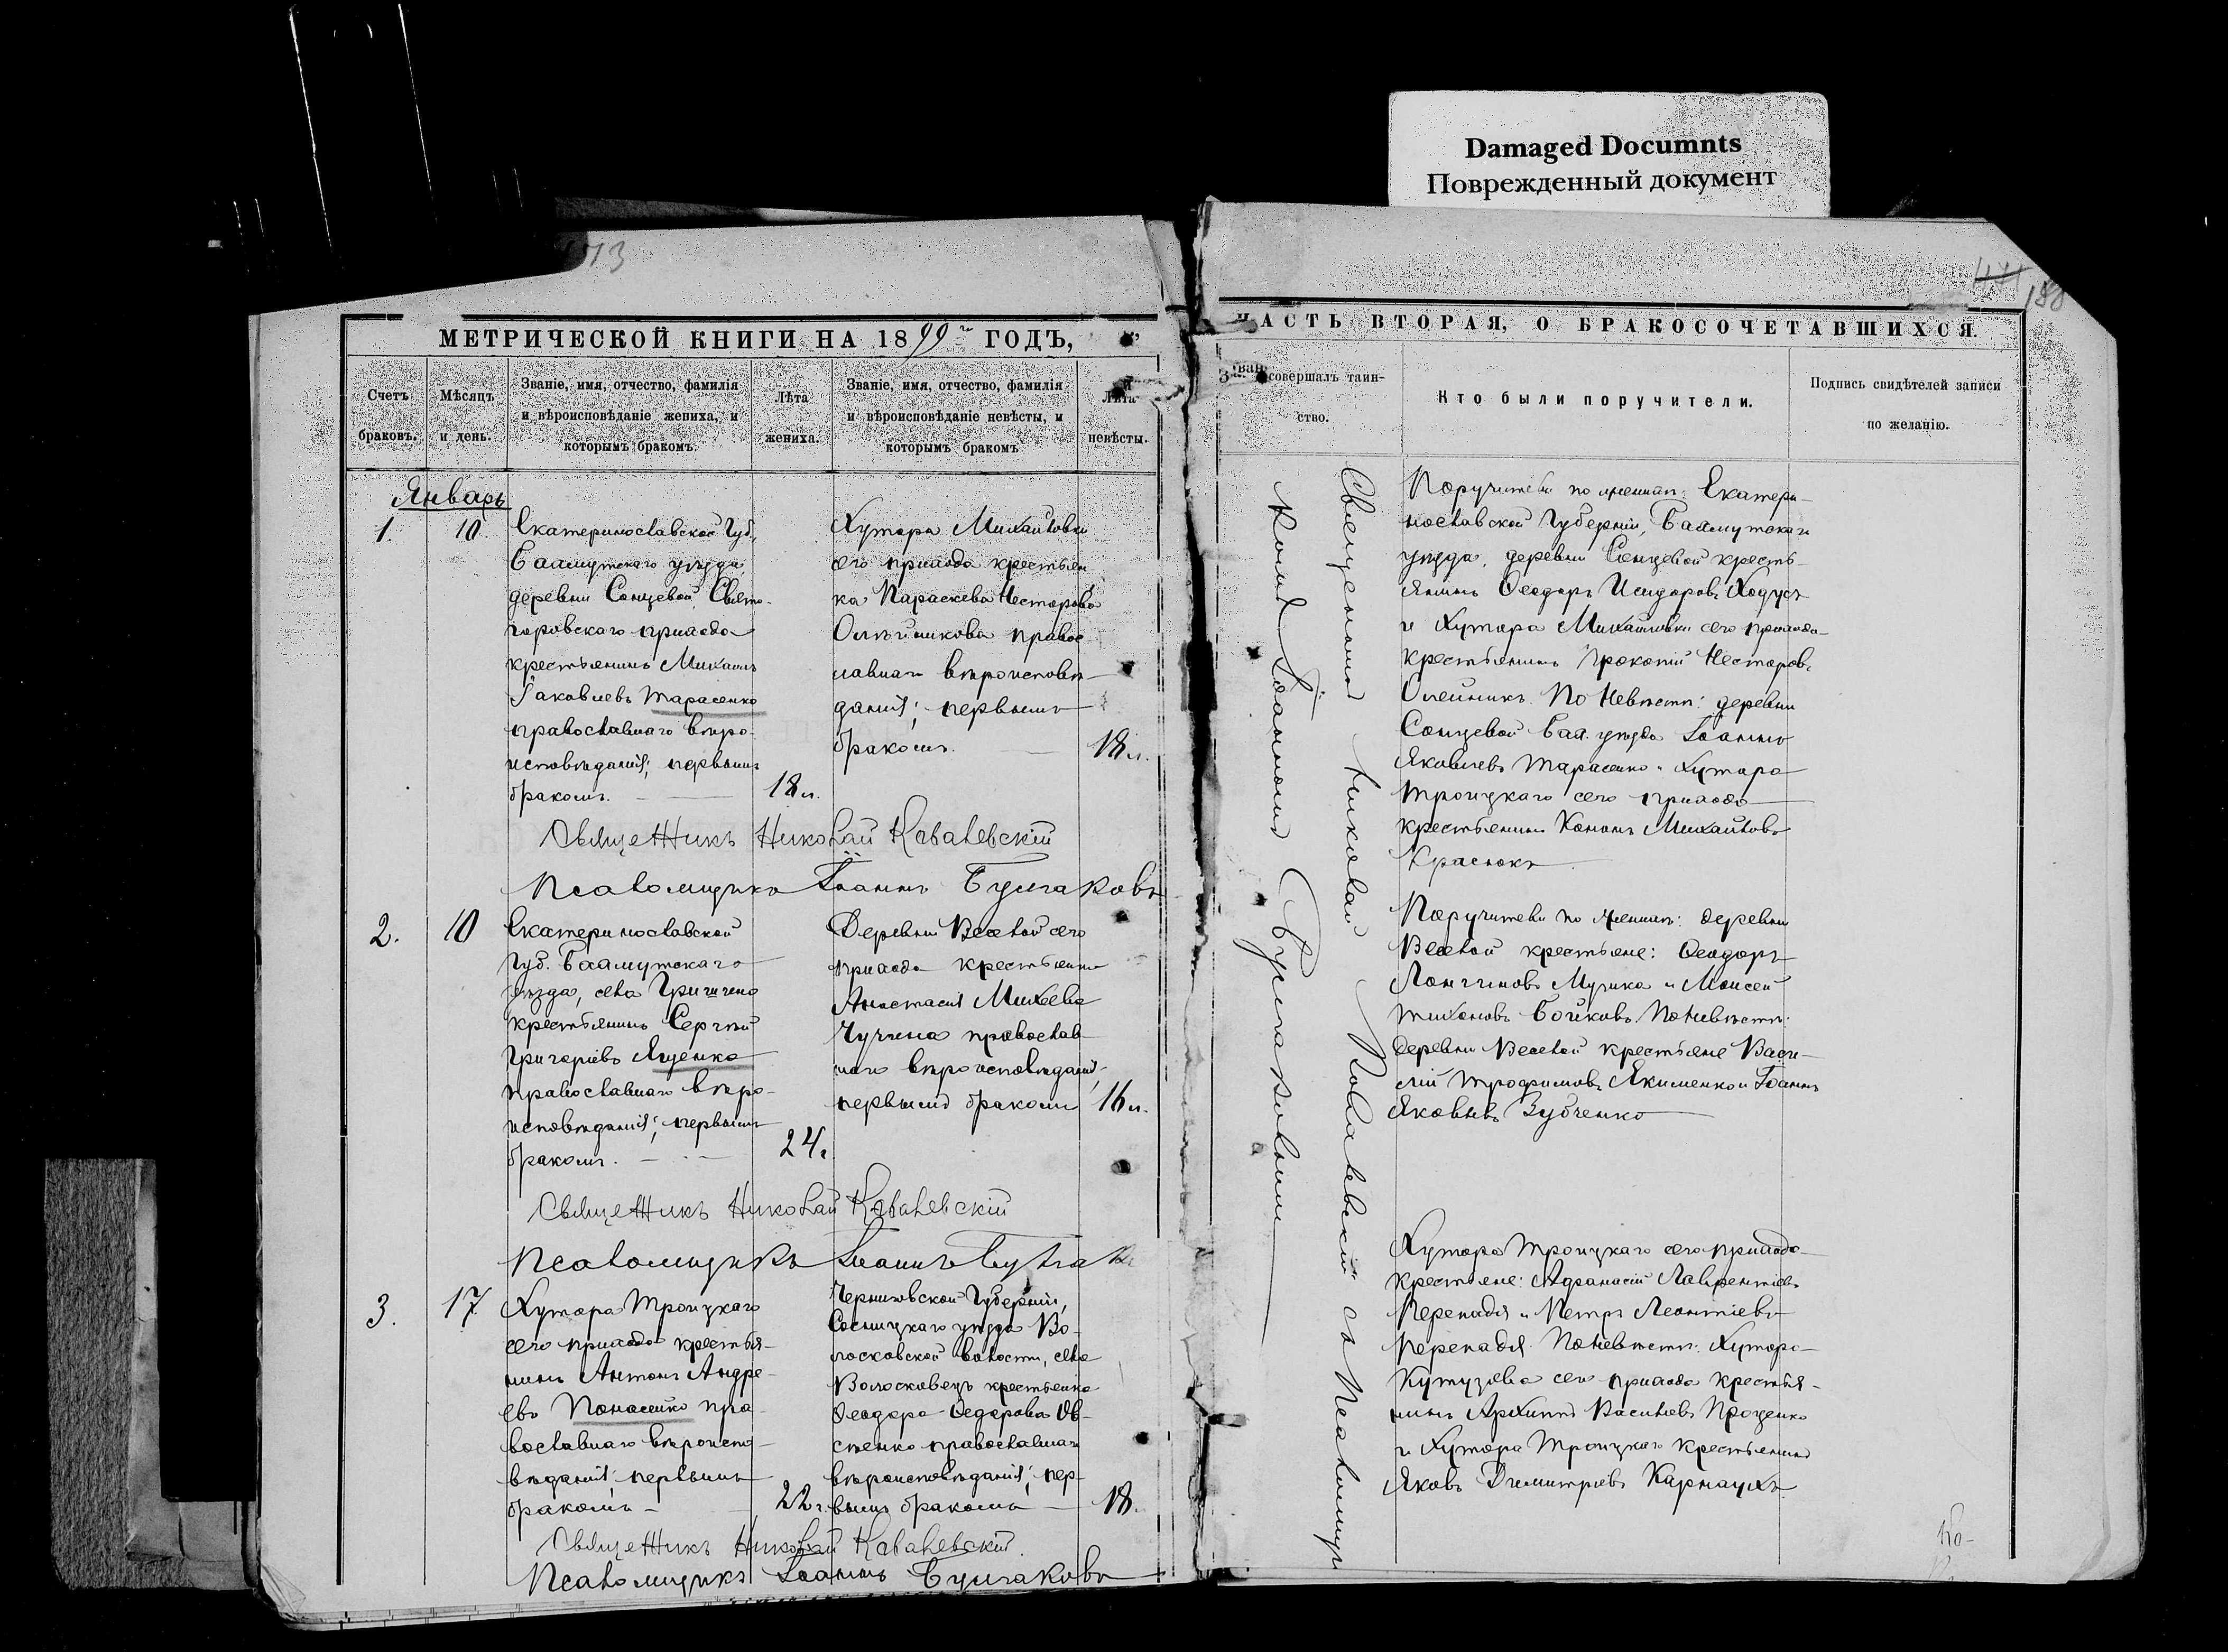 Damaged Documnts
Поврежденный документ
МЕТРИЧЕСКОЙ КНИГИ НА 1899 ГОДЪ,
Счетъ браковъ.
Мѣсяцъ и день.
Званіе, имя, отчество, фамилія
и вѣроисповѣданіе жениха, и
которымъ бракомъ.
Лѣта
жениха.
Званіе, имя, отчество, фамилія
и вѣроисповѣданіе невѣсты, и
которымъ бракомъ
Лѣта
невѣсты.
Январь
1.
10.
Екатеринославской Губ.,
Бахмутскаго уѣзда,
деревни Сонцевой, Свято-
горовскаго прихода
крестьянинъ Михаилъ
Іаковлевъ Тарасенко
православнаго вѣро-
исповѣданія; первымъ
бракомъ.
18 л.
Хутора Михайловки
сего прихода крестьян
ка Параскева Несторова
Олѣйникова правос
лавнаго вѣроисповѣ-
данія; первымъ
бракомъ.
18 л.
Священникъ Николай Ковалевскій
Псаломщикъ Іоаннъ Булгаковъ
2.
10
Екатеринославской
Губ. Бахмутскаго
уѣзда, села Гришина
крестьянинъ Сергѣй
Григоріевъ Ященко
православнаго вѣро-
исповѣданія; первымъ
бракомъ.
24.
Деревни Веселой сего
прихода крестьянка
Анастасія Михеева
православ-
наго вѣроисповѣданія,
первымъ бракомъ
16 л.
Священникъ Николай Ковалевскій
Псаломщикъ Іоаннъ
3.
17
Хутора Троицкаго
сего прихода крестья-
нинъ Антонъ Андре-
евъ Панасенко пра-
вославнаго вѣроиспо-
вѣданія; первымъ
бракомъ
22 г.
Черниговской Губерніи,
Сосницкаго уѣзда Во-
лосковской волости, села
Волосковецъ крестьянка
Феодора Федорова Ов-
сѣенко православнаго
вѣроисповѣданія; пер-
вымъ бракомъ
18.
Священникъ Николай Ковалевскій.
Псаломщикъ Іоаннъ Булгаковъ
ЧАСТЬ ВТОРАЯ, О БРАКОСОЧЕТАВШИХСЯ.
188
совершалъ таин-
ство.
Кто были поручители.
Подпись свидѣтелей записи
по желанію.
Священникъ Николай Ковалевскій съ Псаломщи
комъ Іоанномъ Булгаковымъ
Поручители по женихѣ: Екатери-
нославской Губерніи, Бахмутскаго
уѣзда, деревни Сонцевой кресть-
янинъ Феодоръ Исидоровъ Ходусъ
и Хутора Михайловки сего прихода
крестьянинъ Прокопій Несторовъ
Олейникъ. По Невѣстѣ: деревни
Сонцевой Бах. уѣзда Іоаннъ
Яковлевъ Тарасенко и Хутора
Троицкаго сего прихода
крестьянинъ Кононъ Михайловъ
Краснокъ
Поручители по женихѣ: деревни
Веселой крестьяне: Феодоръ
Лонгиновъ Музыка и Моисей
Тихоновъ Бойковъ. По Невѣстѣ:
деревни Веселой крестьяне Васи-
лій Трофимовъ Якименко и Іоаннъ
Яковлевъ Зубченко
Хутора Троицкаго сего прихода
крестьяне: Афанасій Лаврентіевъ
Перепадя и Петръ Леонтіевъ
Перепадя. По Невѣстѣ: Хутора
Кутузова сего прихода крестья-
нинъ Архипъ Васильевъ Проценко
и Хутора Троицкаго крестьянинъ
Яковъ Димитріевъ Карнаухъ.